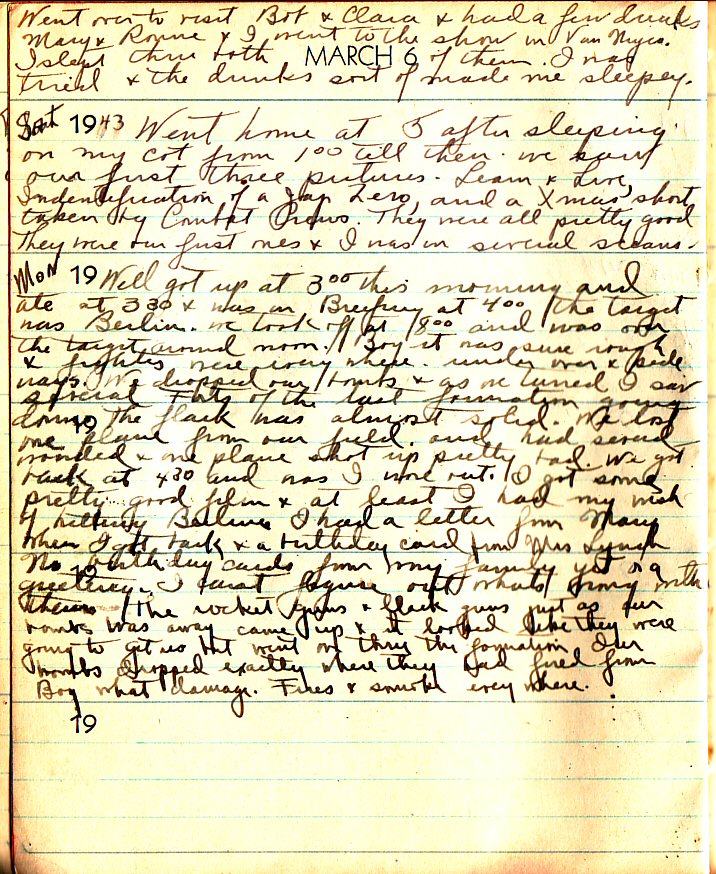 Went over to visit Bob & Clara & had a few drinks
Mary & Ronnie & I went to the show in Van Nuys.
I slept thru both of them. I was
MARCH 6
tried & the drinks sort of made me sleepey.
Sat 1943 Went home at 5 after sleeping
on my cot from 1 00 till then. we saw
our first three pictures. Learn & Live,
Indentification of a Jap Zero, and a Xmas short
taken by Combat Crews. They were all pretty good
They were our first ones & I was in several sceans.
Mon 19 Well got up at 3 00 this morning and
ate at 3 30 & was in Breefing at 4 00 the target
was Berlin. we took off at 8 00 and was over
the target around noon. Boy it was sure rough
& fighters were every where. under over & side
ways. We dropped our bombs & as we turned I saw
several forts of the last formation going
down. The flack was almost solid. We lost
19
one plane from our field. and had several
wonded & one plane shot up pretty bad. We got
back at 4 30 and was I wore out. I got some
pretty good film & at least I had my wish
of hitting Berlin. I had a letter from Mary
when I got back & a birthday card from Mrs Lynch
No birthday cards from my family yet or a
19
greeting. I cant figure out whats wrong with
them. The rocket guns & flack guns just as our
bombs was away came up & it looked like they were
going to get us but went on thru the formation. Our
bombs dropped exactly where they had fired from
Boy what damage. Fires & smoke every where.
19